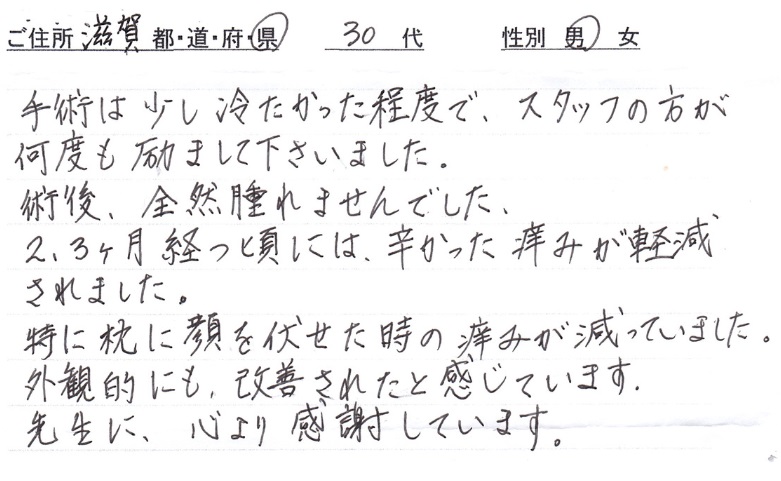 ご住所 滋賀 都・道・府・県 30 代 性別 男 女
手術は少し冷たかった程度で、スタッフの方が
何度も励まして下さいました。
術後、全然腫れませんでした、
2、3ヶ月経つと頃には、辛かった痒みが軽減
されました。
特に枕に顔を伏せた時の痒みが減っていました。
外観的にも、改善されたと感じています.
先生に、心より感謝しています。